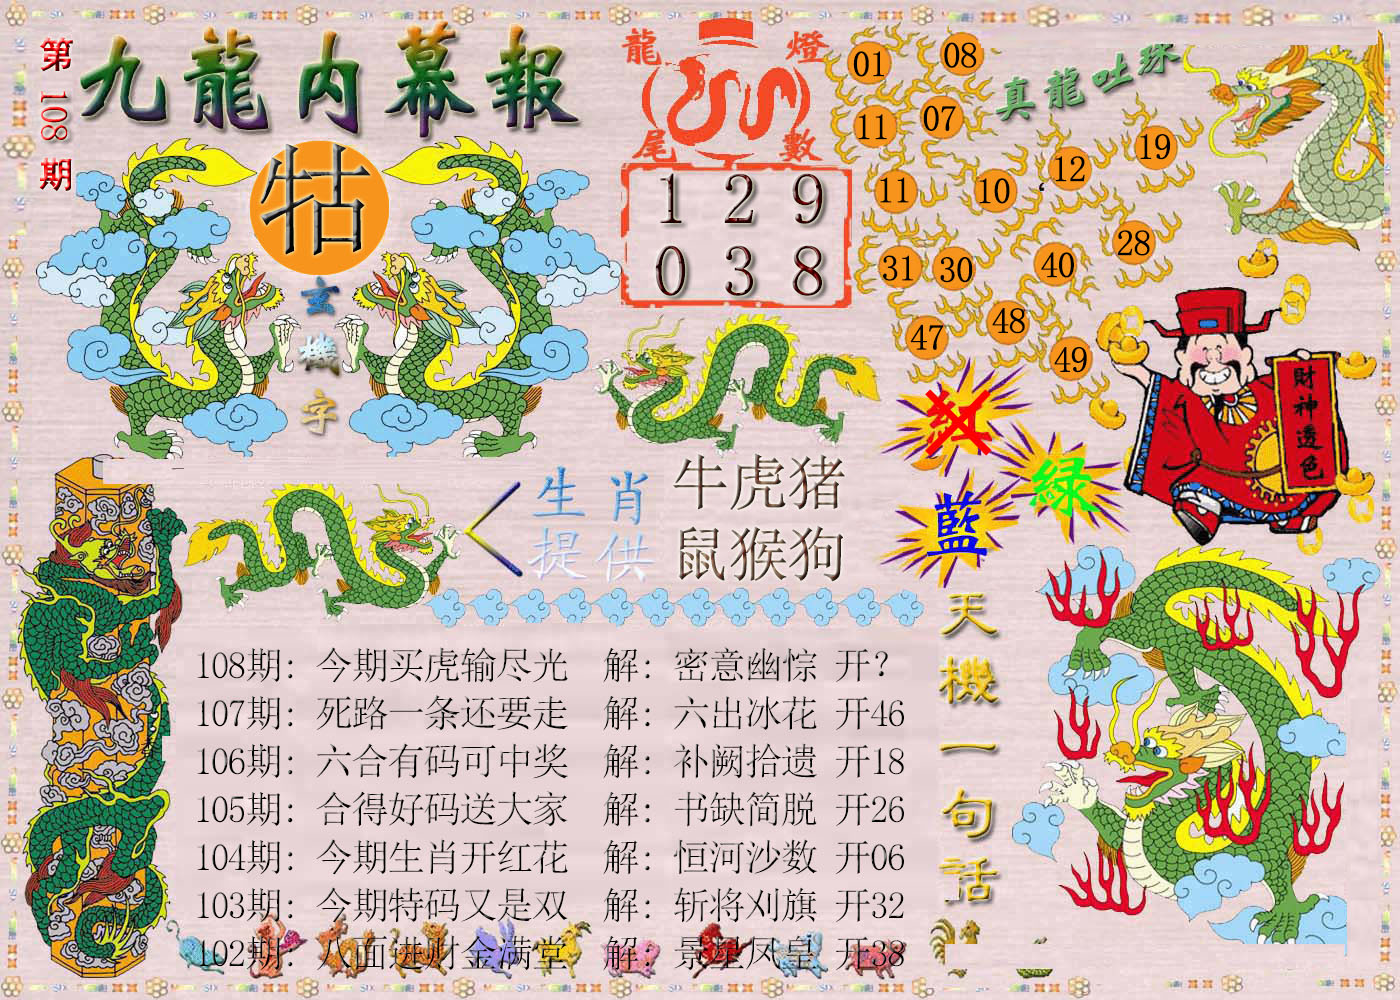 第108期
九龍内幕報
牯
玄機字
龍燈
尾數
1 2 9
0 3 8
真龍吐珠
01 08
11 07
11 10 12 19
31 30 40 28
47 48 49
財神透色
紅
綠
藍
生肖
提供
牛虎猪
鼠猴狗
天機一句話
108期：今期买虎输尽光 解：密意幽悰 开？
107期：死路一条还要走 解：六出冰花 开46
106期：六合有码可中奖 解：补阙拾遗 开18
105期：合得好码送大家 解：书缺简脱 开26
104期：今期生肖开红花 解：恒河沙数 开06
103期：今期特码又是双 解：斩将刈旗 开32
102期：八面进财金满堂 解：景星凤皇 开38